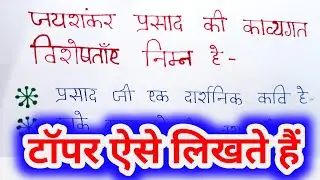 जयशंकर प्रसाद की काव्यगत
विशेषताएँ निम्न है -
प्रसाद जी एक दार्शनिक कवि है
टॉपर ऐसे लिखते हैं